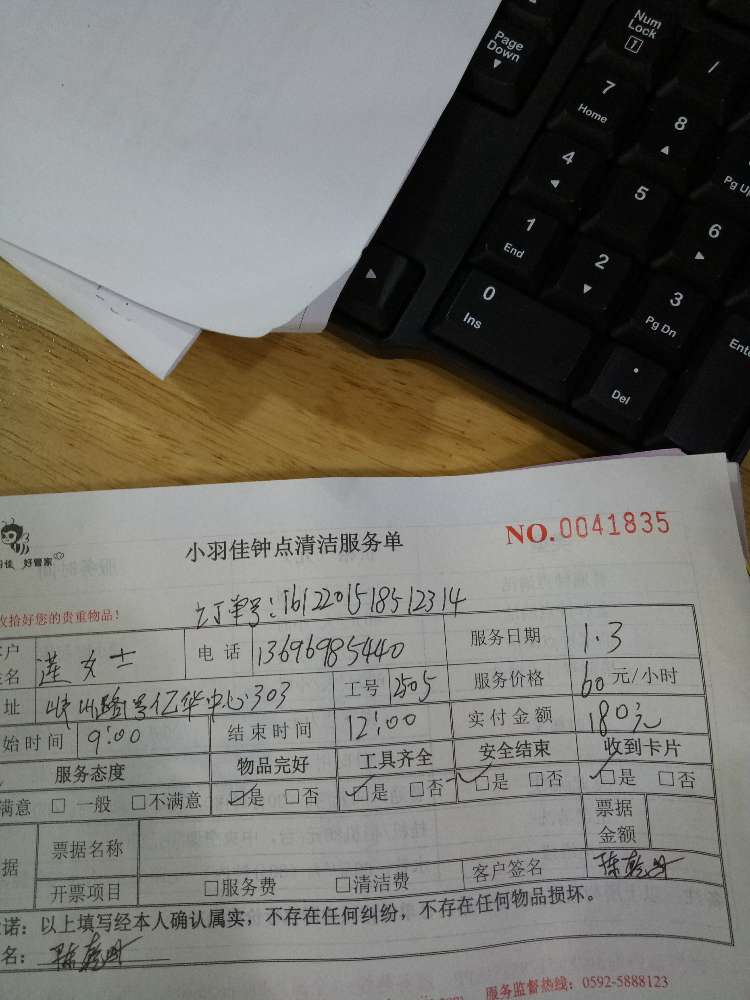 Num
Lock
Page
Down
/
7
Home
8
4
5
Pg Up
1
End
2
6
0
Ins
3
Pg Dn
Ente
.
Del
小羽佳钟点清洁服务单
NO.0041835
好管家
收拾好您的贵重物品!
订单号:1612201518512314
客户
姓名 莲女士 电话 13696985440 服务日期 1.3
址 亿华中心303 工号 2505 服务价格 60元/小时
始时间 9:00 结束时间 12:00 实付金额 180元
服务态度 物品完好 工具齐全 安全结束 收到卡片
满意 □ 一般 □不满意 ☑是 □否 ☑是 □否 ☑是 □否 ☑是 □否
据 票据名称 票据
金额
开票项目 □服务费 □清洁费 客户签名
诺:以上填写经本人确认属实,不存在任何纠纷,不存在任何物品损坏。
名:
服务监督热线:0592-5888123